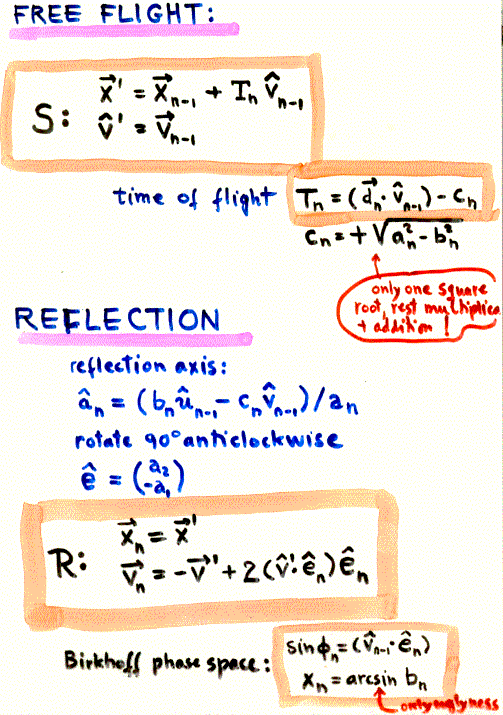 FREE FLIGHT:
S: x⃗' = x⃗ₙ₋₁ + Tₙ v̂ₙ₋₁
v̂' = v⃗ₙ₋₁
time of flight Tₙ = (d⃗ₙ · v̂ₙ₋₁) - cₙ
cₙ = + √(aₙ² - bₙ²)
only one square
root, rest multiplica
+ addition !
REFLECTION
reflection axis:
âₙ = (bₙ ûₙ₋₁ - cₙ v̂ₙ₋₁)/aₙ
rotate 90° anticlockwise
ê = (a₂
-a₁)
R: x⃗ₙ = x⃗'
v⃗ₙ = -v⃗' + 2(v̂'·êₙ)êₙ
Birkhoff phase space: sin ϕₙ = (v̂ₙ₋₁ · êₙ)
xₙ = arcsin bₙ
only uglyness